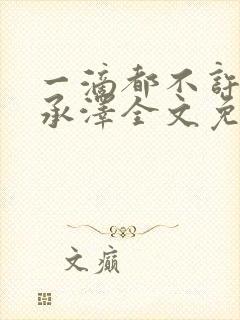 一滴都不許
承澤全文免
文癫